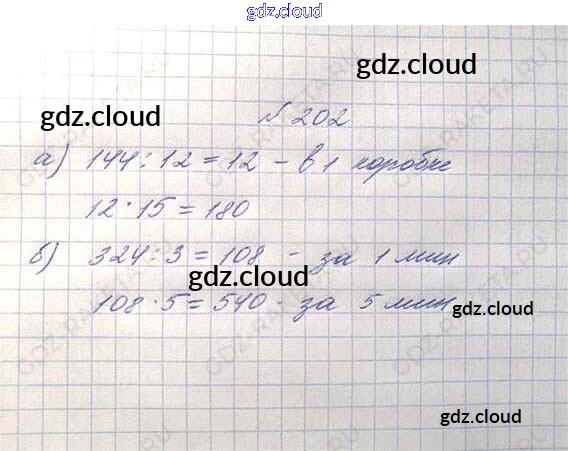 gdz.cloud
gdz.cloud
gdz.cloud
№ 202
а) 144 : 12 = 12 - в 1 коробке
12 · 15 = 180
б) 324 : 3 = 108 - за 1 мин
gdz.cloud
108 · 5 = 540 - за 5 мин
gdz.cloud
gdz.cloud